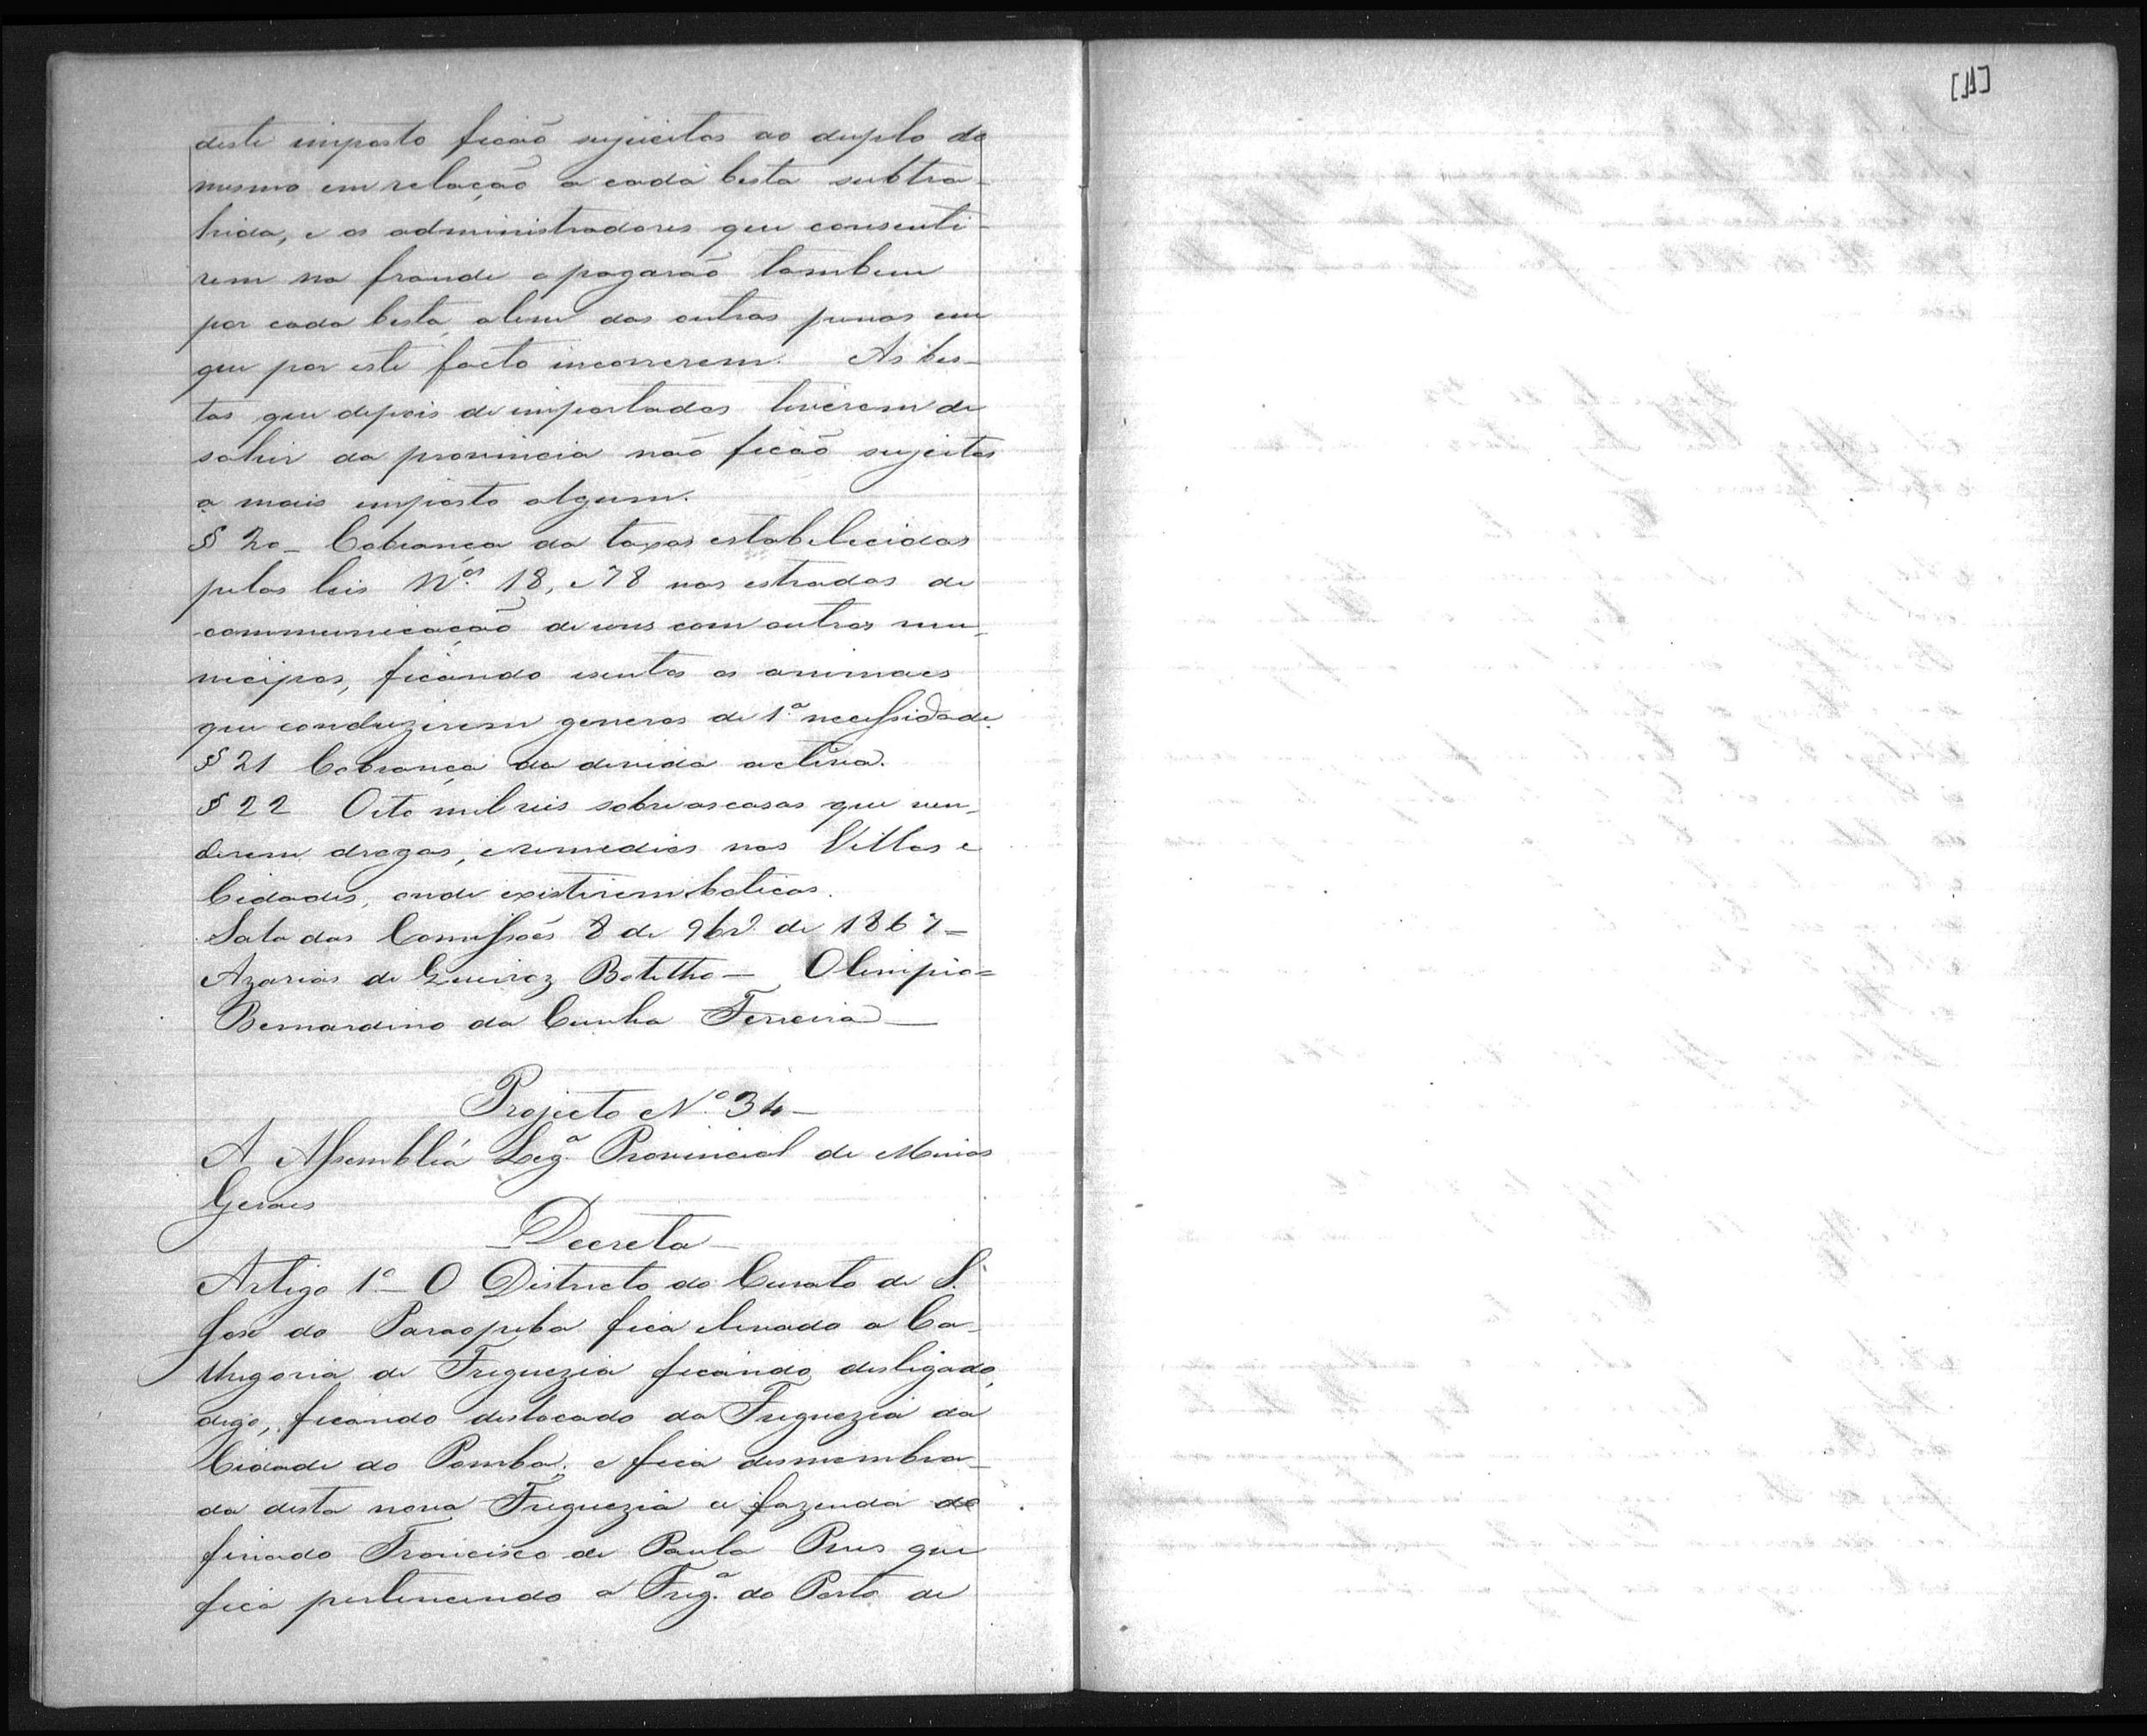 deste imposto ficaõ sujeitas ao duplo do
mesmo em relação a cada besta subtra-
hida, e os administradores que consenti-
rem na fraude o pagaraõ tambem
por cada besta alem das outras penas em
que por este facto incorrerem. As bes-
tas que depois de importadas tiverem de
sahir da provincia naõ ficaõ sujeitas
a mais imposto algum.
§ 20 _ Cobrança da taxas estabelecidas
pelas leis Nos. 18, e 78 nas estradas de
communicação de uns com outros mu-
nicipos, ficando isentos os animaes
que conduzirem generos de 1.ª necessidade.
§ 21 Cobrança da devida activa.
§ 22 Oito mil reis sobre as casas que ven-
derem drogas, e remedios nas Villas e
Cidades, onde existirem boticas.
Sala das Comissões 8 de 9br.º de 1867 _
Azarias de Queiroz Botelho _ Olimpio =
Bernardino da Cunha Ferreira _
Projecto N.º 34 _
A Assembléa Leg.ª Provincial de Minas
Geraes
_ Decreta _
Artigo 1.º _ O Districto do Curato de S.
José do Paraopeba fica elevado a Ca-
thegoria de Freguezia ficando desligado,
digo, ficando deslocado da Freguezia da
Cidade do Pomba, e fica desmembra-
da desta nova Freguezia a fazenda do
finado Francisco de Paula que
fica pertencendo a Freg.ª do Porto de
[11]